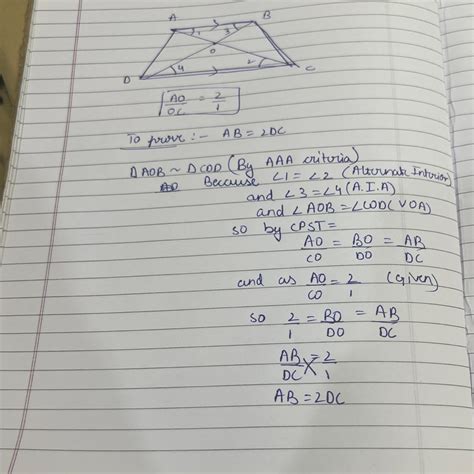 A B
1 3
O
4 2
D C
AO/OC = 2/1
To prove :- AB = 2DC
ΔAOB ~ ΔCOD (By AAA criteria)
Because ∠1 = ∠2 (Alternate Interior)
and ∠3 = ∠4 (A.I.A)
and ∠AOB = ∠COD (VOA)
so by CPST =
AO/CO = BO/DO = AB/DC
and as AO/CO = 2/1 (Given)
so 2/1 = BO/DO = AB/DC
AB/DC = 2/1
AB = 2DC